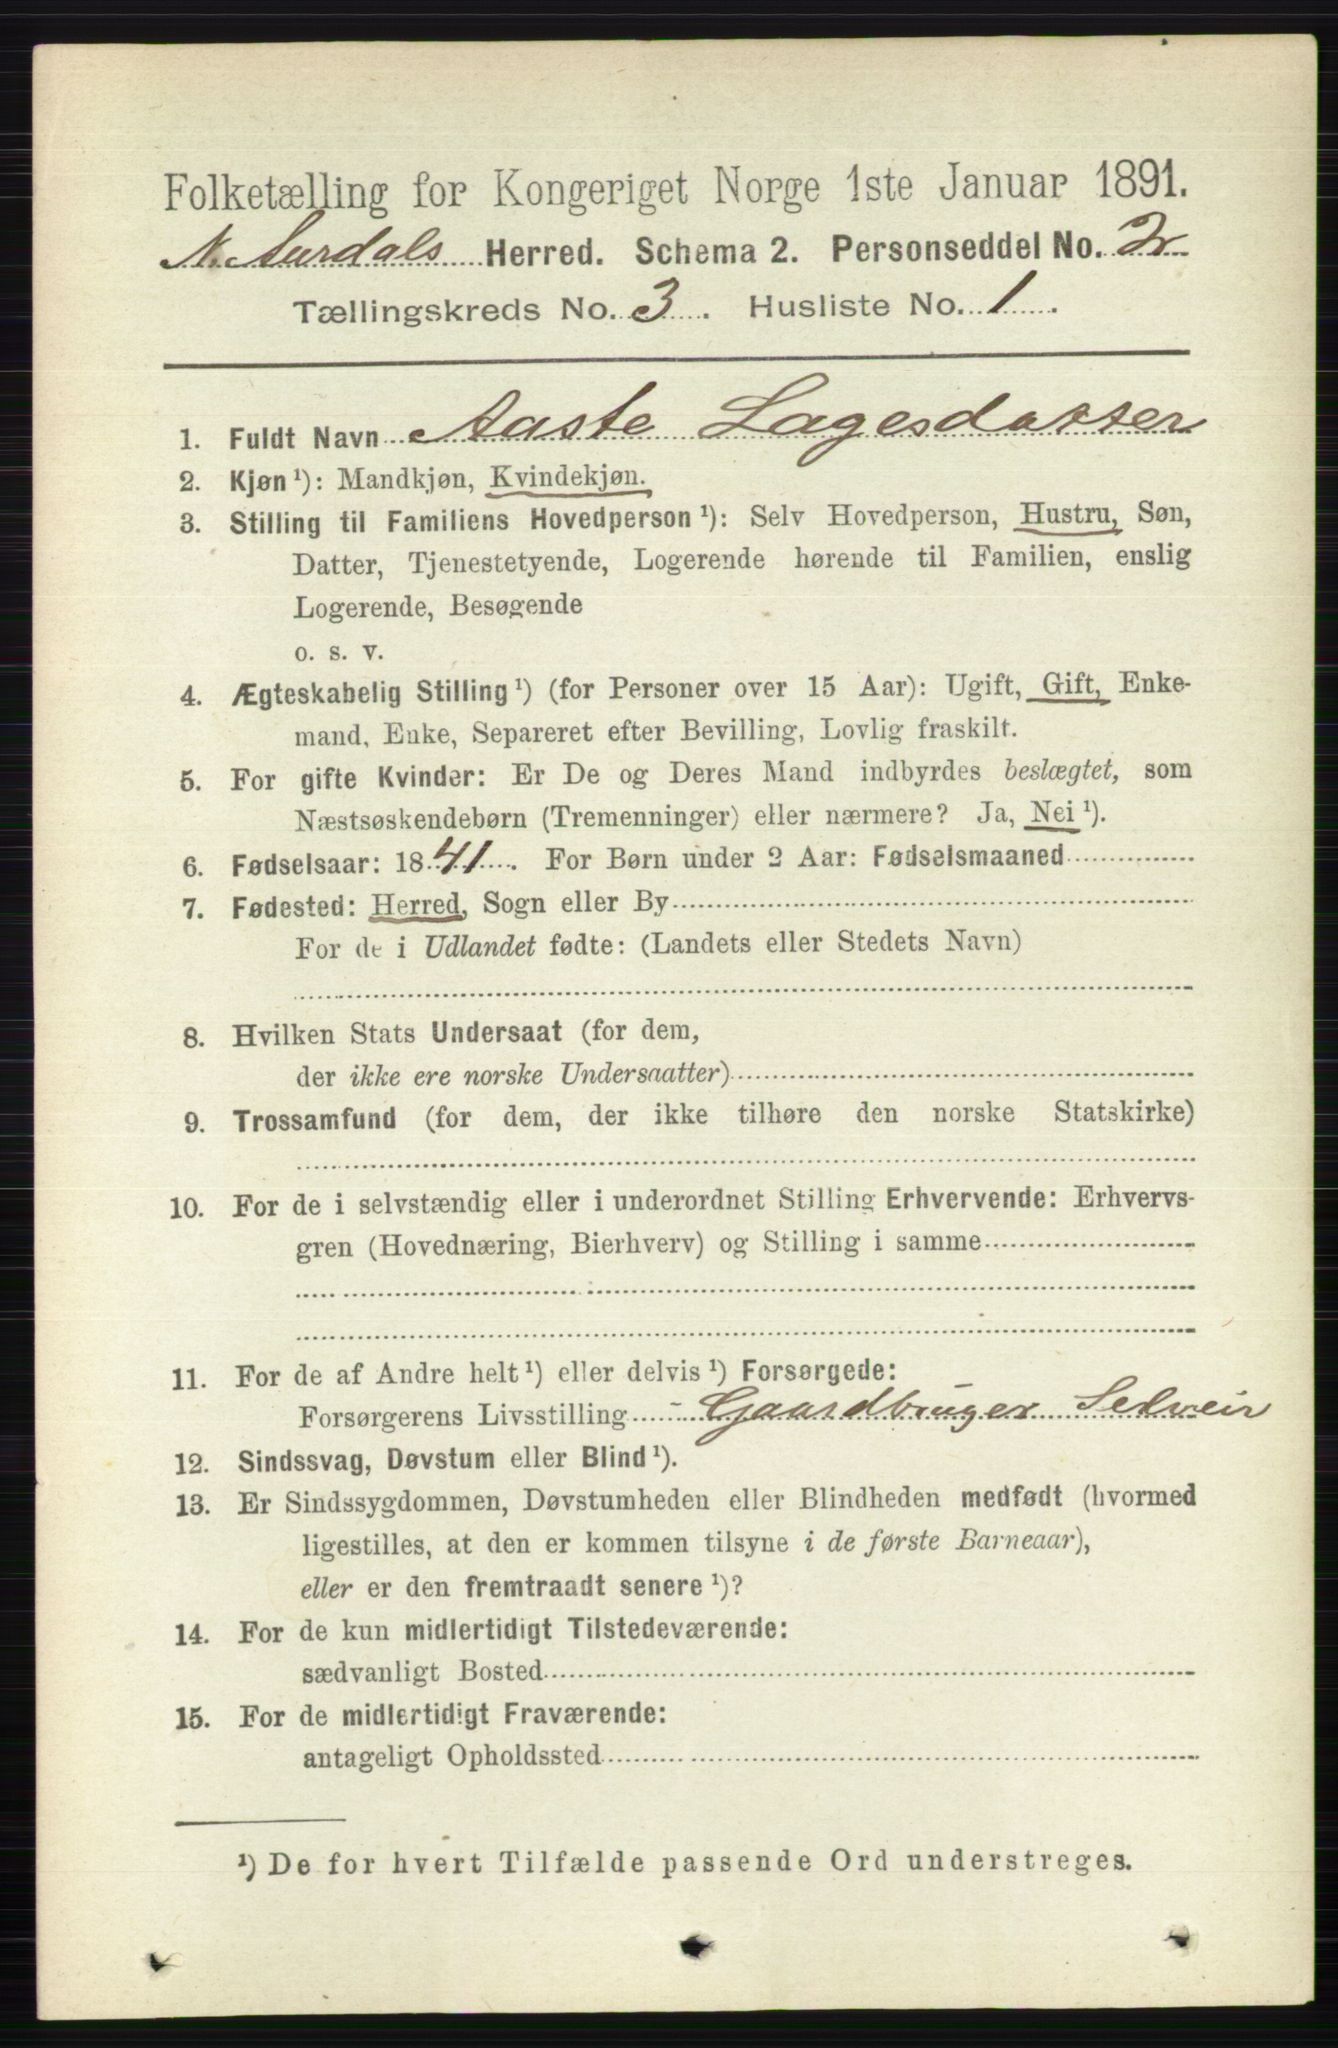 Folketælling for Kongeriget Norge 1ste Januar 1891.
N. Aurdals Herred. Schema 2. Personseddel No. 2
Tællingskreds No. 3. Husliste No. 1.
1. Fuldt Navn Aaste Lagesdatter
2. Kjøn ¹): Mandkjøn, Kvindekjøn.
3. Stilling til Familiens Hovedperson ¹): Selv Hovedperson, Hustru, Søn,
Datter, Tjenestetyende, Logerende hørende til Familien, enslig
Logerende, Besøgende
o. s. v.
4. Ægteskabelig Stilling ¹) (for Personer over 15 Aar): Ugift, Gift, Enke-
mand, Enke, Separeret efter Bevilling, Lovlig fraskilt.
5. For gifte Kvinder: Er De og Deres Mand indbyrdes beslægtet, som
Næstsøskendebørn (Tremenninger) eller nærmere? Ja, Nei ¹).
6. Fødselsaar: 1841. For Børn under 2 Aar: Fødselsmaaned
7. Fødested: Herred, Sogn eller By
For de i Udlandet fødte: (Landets eller Stedets Navn)
8. Hvilken Stats Undersaat (for dem,
der ikke ere norske Undersaatter)
9. Trossamfund (for dem, der ikke tilhøre den norske Statskirke)
10. For de i selvstændig eller i underordnet Stilling Erhvervende: Erhvervs-
gren (Hovednæring, Bierhverv) og Stilling i samme
11. For de af Andre helt ¹) eller delvis ¹) Forsørgede:
Forsørgerens Livsstilling - Gaardbruger Selveier
12. Sindssvag, Døvstum eller Blind ¹).
13. Er Sindssygdommen, Døvstumheden eller Blindheden medfødt (hvormed
ligestilles, at den er kommen tilsyne i de første Barneaar),
eller er den fremtraadt senere ¹)?
14. For de kun midlertidigt Tilstedeværende:
sædvanligt Bosted
15. For de midlertidigt Fraværende:
antageligt Opholdssted
¹) De for hvert Tilfælde passende Ord understreges.